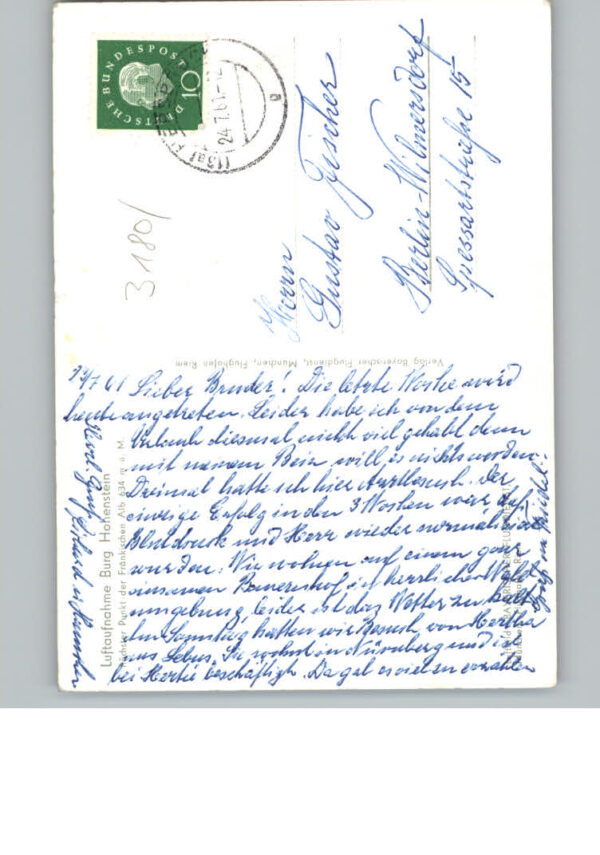 DEUTSCHE BUNDESPOST
10
(13a)
24.7.61
3180/
Herrn
Gustav Fischer
Berlin-Wilmersdorf
Spessartstraße 15
Verlag Bayerischer Flugdienst, München, Flughafen Riem
Luftaufnahme Burg Hohenstein
Höchster Punkt der Fränkischen Alb 634 m ü. M.
23/7 61 Lieber Bruder! Die letzte Woche wird
heute angetreten. Leider habe ich von dem
Urlaub diesmal nicht viel gehabt denn
mit meinem Bein will es nichts werden.
Dreimal hatte ich hier Arztbesuch. Der
einzige Erfolg in den 3 Wochen war, daß
Blutdruck und Herz wieder normal
wurden. Wir wohnen auf einem ganz
einsamen Bauernhof in herrlicher Wald
umgebung, leider ist das Wetter zu kalt
den Sonntag hatten wir Besuch von Hertha
aus Lebus. Sie wohnt in Nürnberg und ist
bei Hertie beschäftigt. Da gab es viel zu erzählen
Herzl. Grüße